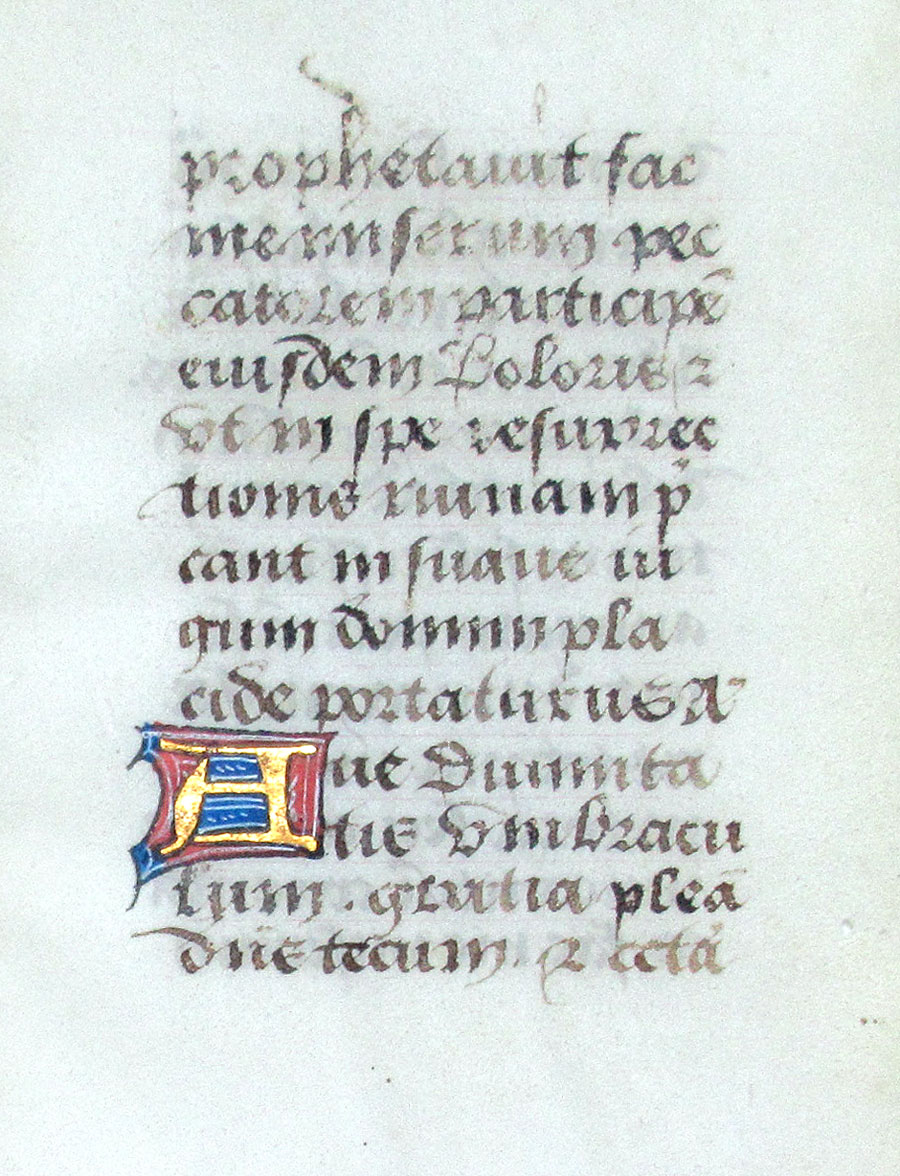 prophetauit fac
me miserum pec
catorem participē
eiusdem doloris ⁊
vt in spe resurrec
tionis viuam p̄
cant in suaue iu
gum domini pla
cide portaturus Am̄
Aue Diuinita
tis vmbracu
lum . gratia pleā
dn̄s tecum . ⁊ cetā